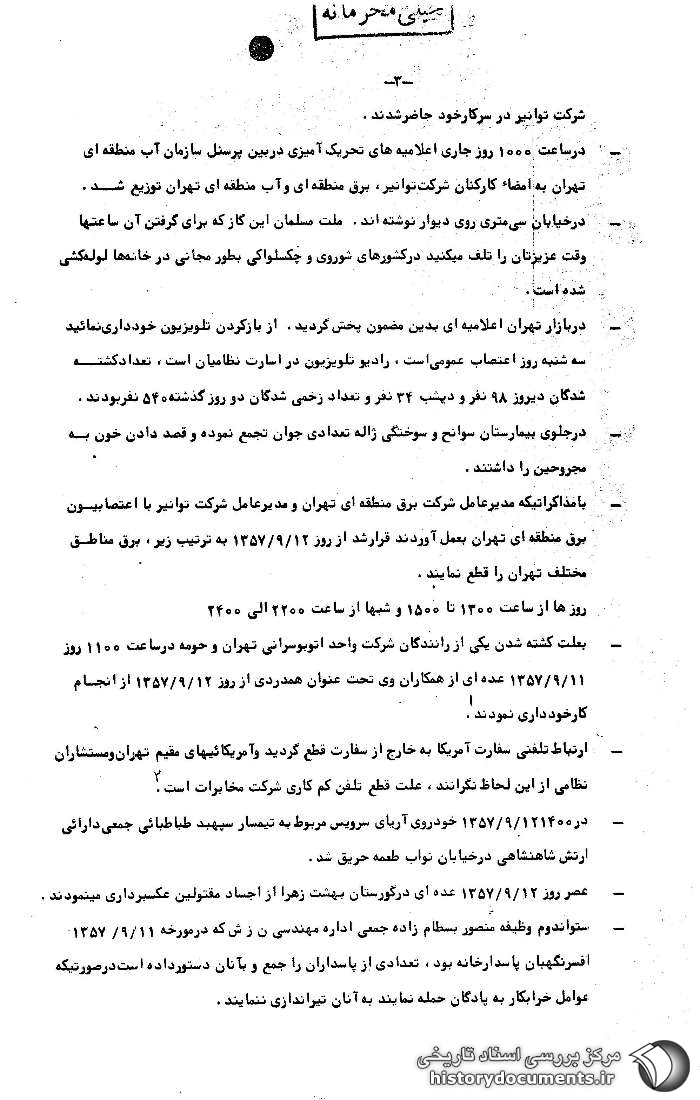 خیلی محرمانه
-۳-
شرکت توانیر در سرکارخود حاضرشدند .
— درساعت ۱۰۰۰ روز جاری اعلامیه های تحریک آمیزی دربین پرسنل سازمان آب منطقه ای
تهران به امضاء کارکنان شرکت‌توانیر ، برق منطقه ای و آب منطقه ای تهران توزیع شـــد .
— درخیابان سی‌متری روی دیوار نوشته اند . ملت مسلمان این گاز که برای گرفتن آن ساعتها
وقت عزیزتان را تلف میکنید درکشورهای شوروی و چکسلواکی بطور مجانی در خانه‌ها لوله‌کشی
شده است .
— دربازار تهران اعلامیه ای بدین مضمون پخش گردید . از بازکردن تلویزیون خودداری‌نمائید
سه شنبه روز اعتصاب عمومی‌است ، رادیو تلویزیون در اسارت نظامیان است ، تعدادکشتـــه
شدگان دیروز ۹۸ نفر و دیشب ۳۴ نفر و تعداد زخمی شدگان دو روز گذشته ۵۴۰ نفربودند .
— درجلوی بیمارستان سوانح و سوختگی ژاله تعدادی جوان تجمع نموده و قصد دادن خون بــه
مجروحین را داشتند .
— بامذاکراتیکه مدیرعامل شرکت برق منطقه ای تهران و مدیرعامل شرکت توانیر با اعتصابیــون
برق منطقه ای تهران بعمل آوردند قرارشد از روز ۱۳۵۷/۹/۱۲ به ترتیب زیر ، برق مناطـق
مختلف تهران را قطع نمایند .
روز ها از ساعت ۱۳۰۰ تا ۱۵۰۰ و شبها از ساعت ۲۲۰۰ الی ۲۴۰۰
— بعلت کشته شدن یکی از رانندگان شرکت واحد اتوبوسرانی تهران و حومه درساعت ۱۱۰۰ روز
۱۳۵۷/۹/۱۱ عده ای از همکاران وی تحت عنوان همدردی از روز ۱۳۵۷/۹/۱۲ از انجـام
کارخودداری نمودند .۱
— ارتباط تلفنی سفارت آمریکا به خارج از سفارت قطع گردید وآمریکائیهای مقیم تهران‌ومستشاران
نظامی از این لحاظ نگرانند ، علت قطع تلفن کم کاری شرکت مخابرات است .۲
— در۱۳۵۷/۹/۱۲۱۴۰۰ خودروی آریای سرویس مربوط به تیمسار سپهبد طباطبائی جمعی‌دارائی
ارتش شاهنشاهی درخیابان نواب طعمه حریق شد .
— عصر روز ۱۳۵۷/۹/۱۲ عده ای درگورستان بهشت زهرا از اجساد مقتولین عکسبرداری مینمودند .
— ستواندوم وظیفه منصور بسطام زاده جمعی اداره مهندسی ن ز ش که درمورخه ۱۳۵۷ /۹/۱۱
افسرنگهبان پاسدارخانه بود ، تعدادی از پاسداران را جمع و بآنان دستورداده است‌درصورتیکه
عوامل خرابکار به پادگان حمله نمایند به آنان تیراندازی ننمایند .
مرکز بررسی اسناد تاریخی
historydocuments.ir